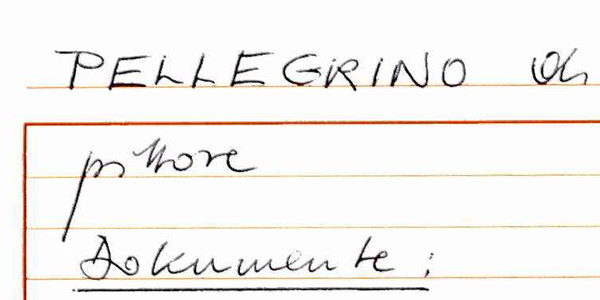 PELLEGRINO di
pittore
Dokumente: